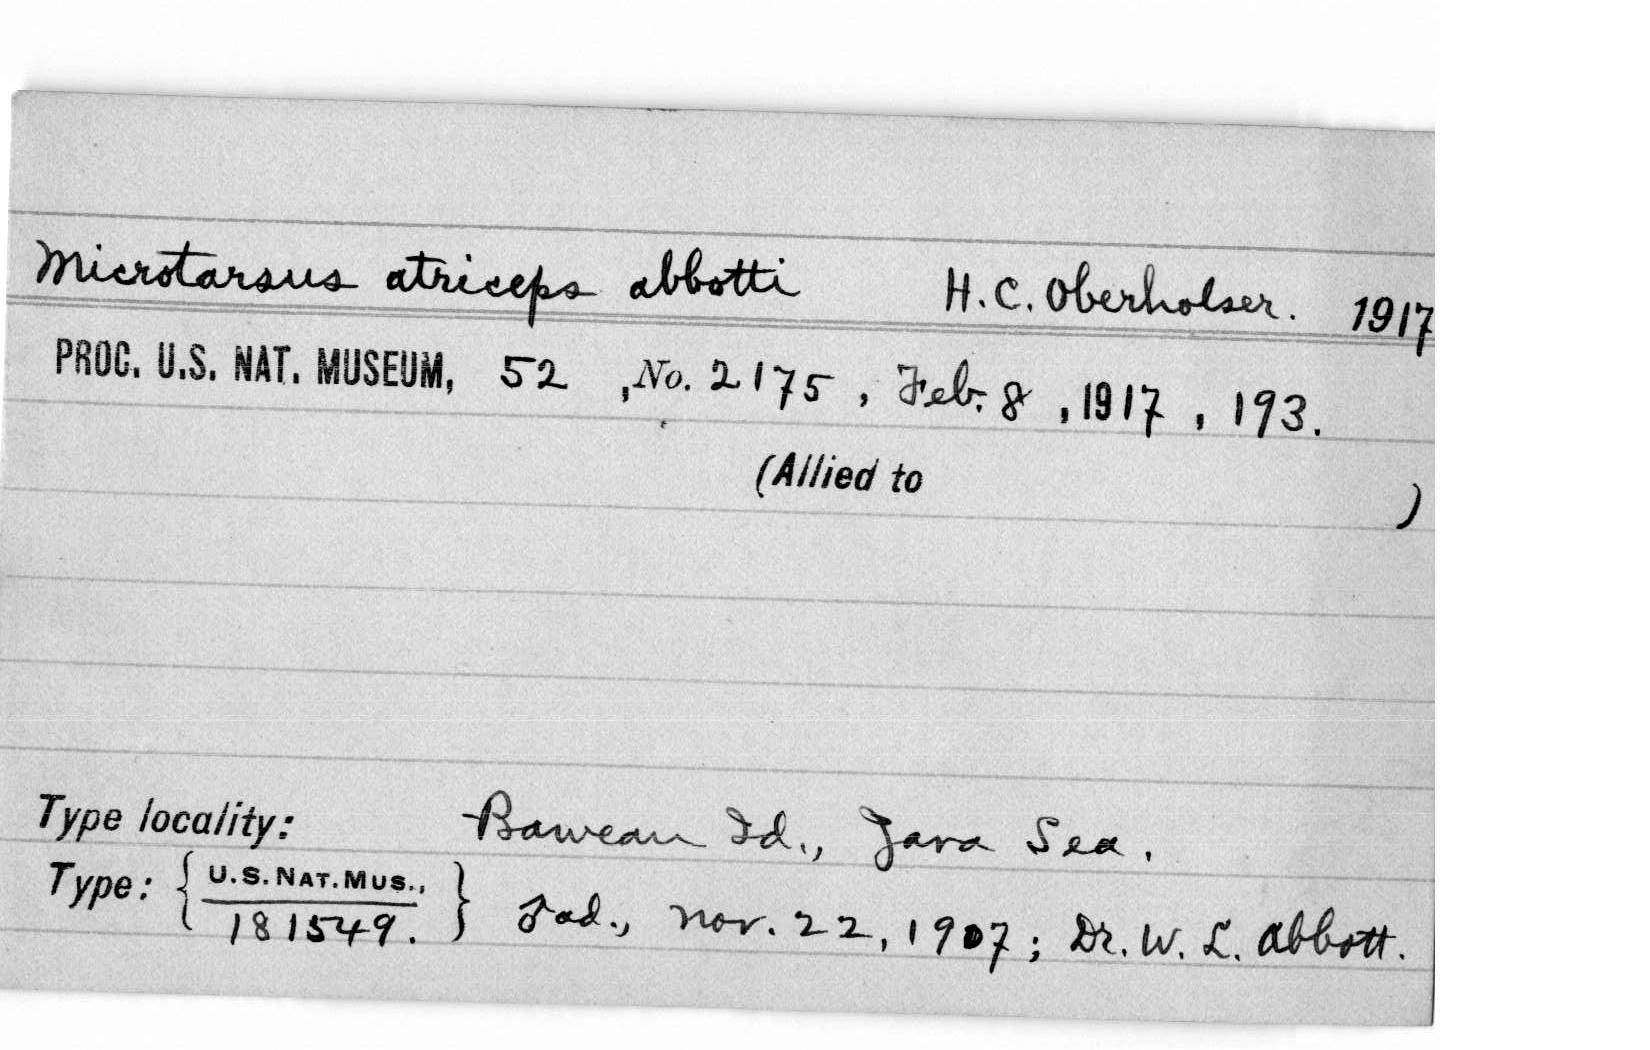 Microtarsus atriceps abbotti H.C. Oberholser. 1917
PROC. U.S. NAT. MUSEUM, 52 , No. 2175 , Feb. 8 , 1917 , 193.
(Allied to )
Type locality: Bawean Id., Java Sea.
Type: { U.S. NAT. MUS., 181549. } ♂ad., Nov. 22, 1907; Dr. W. L. Abbott.